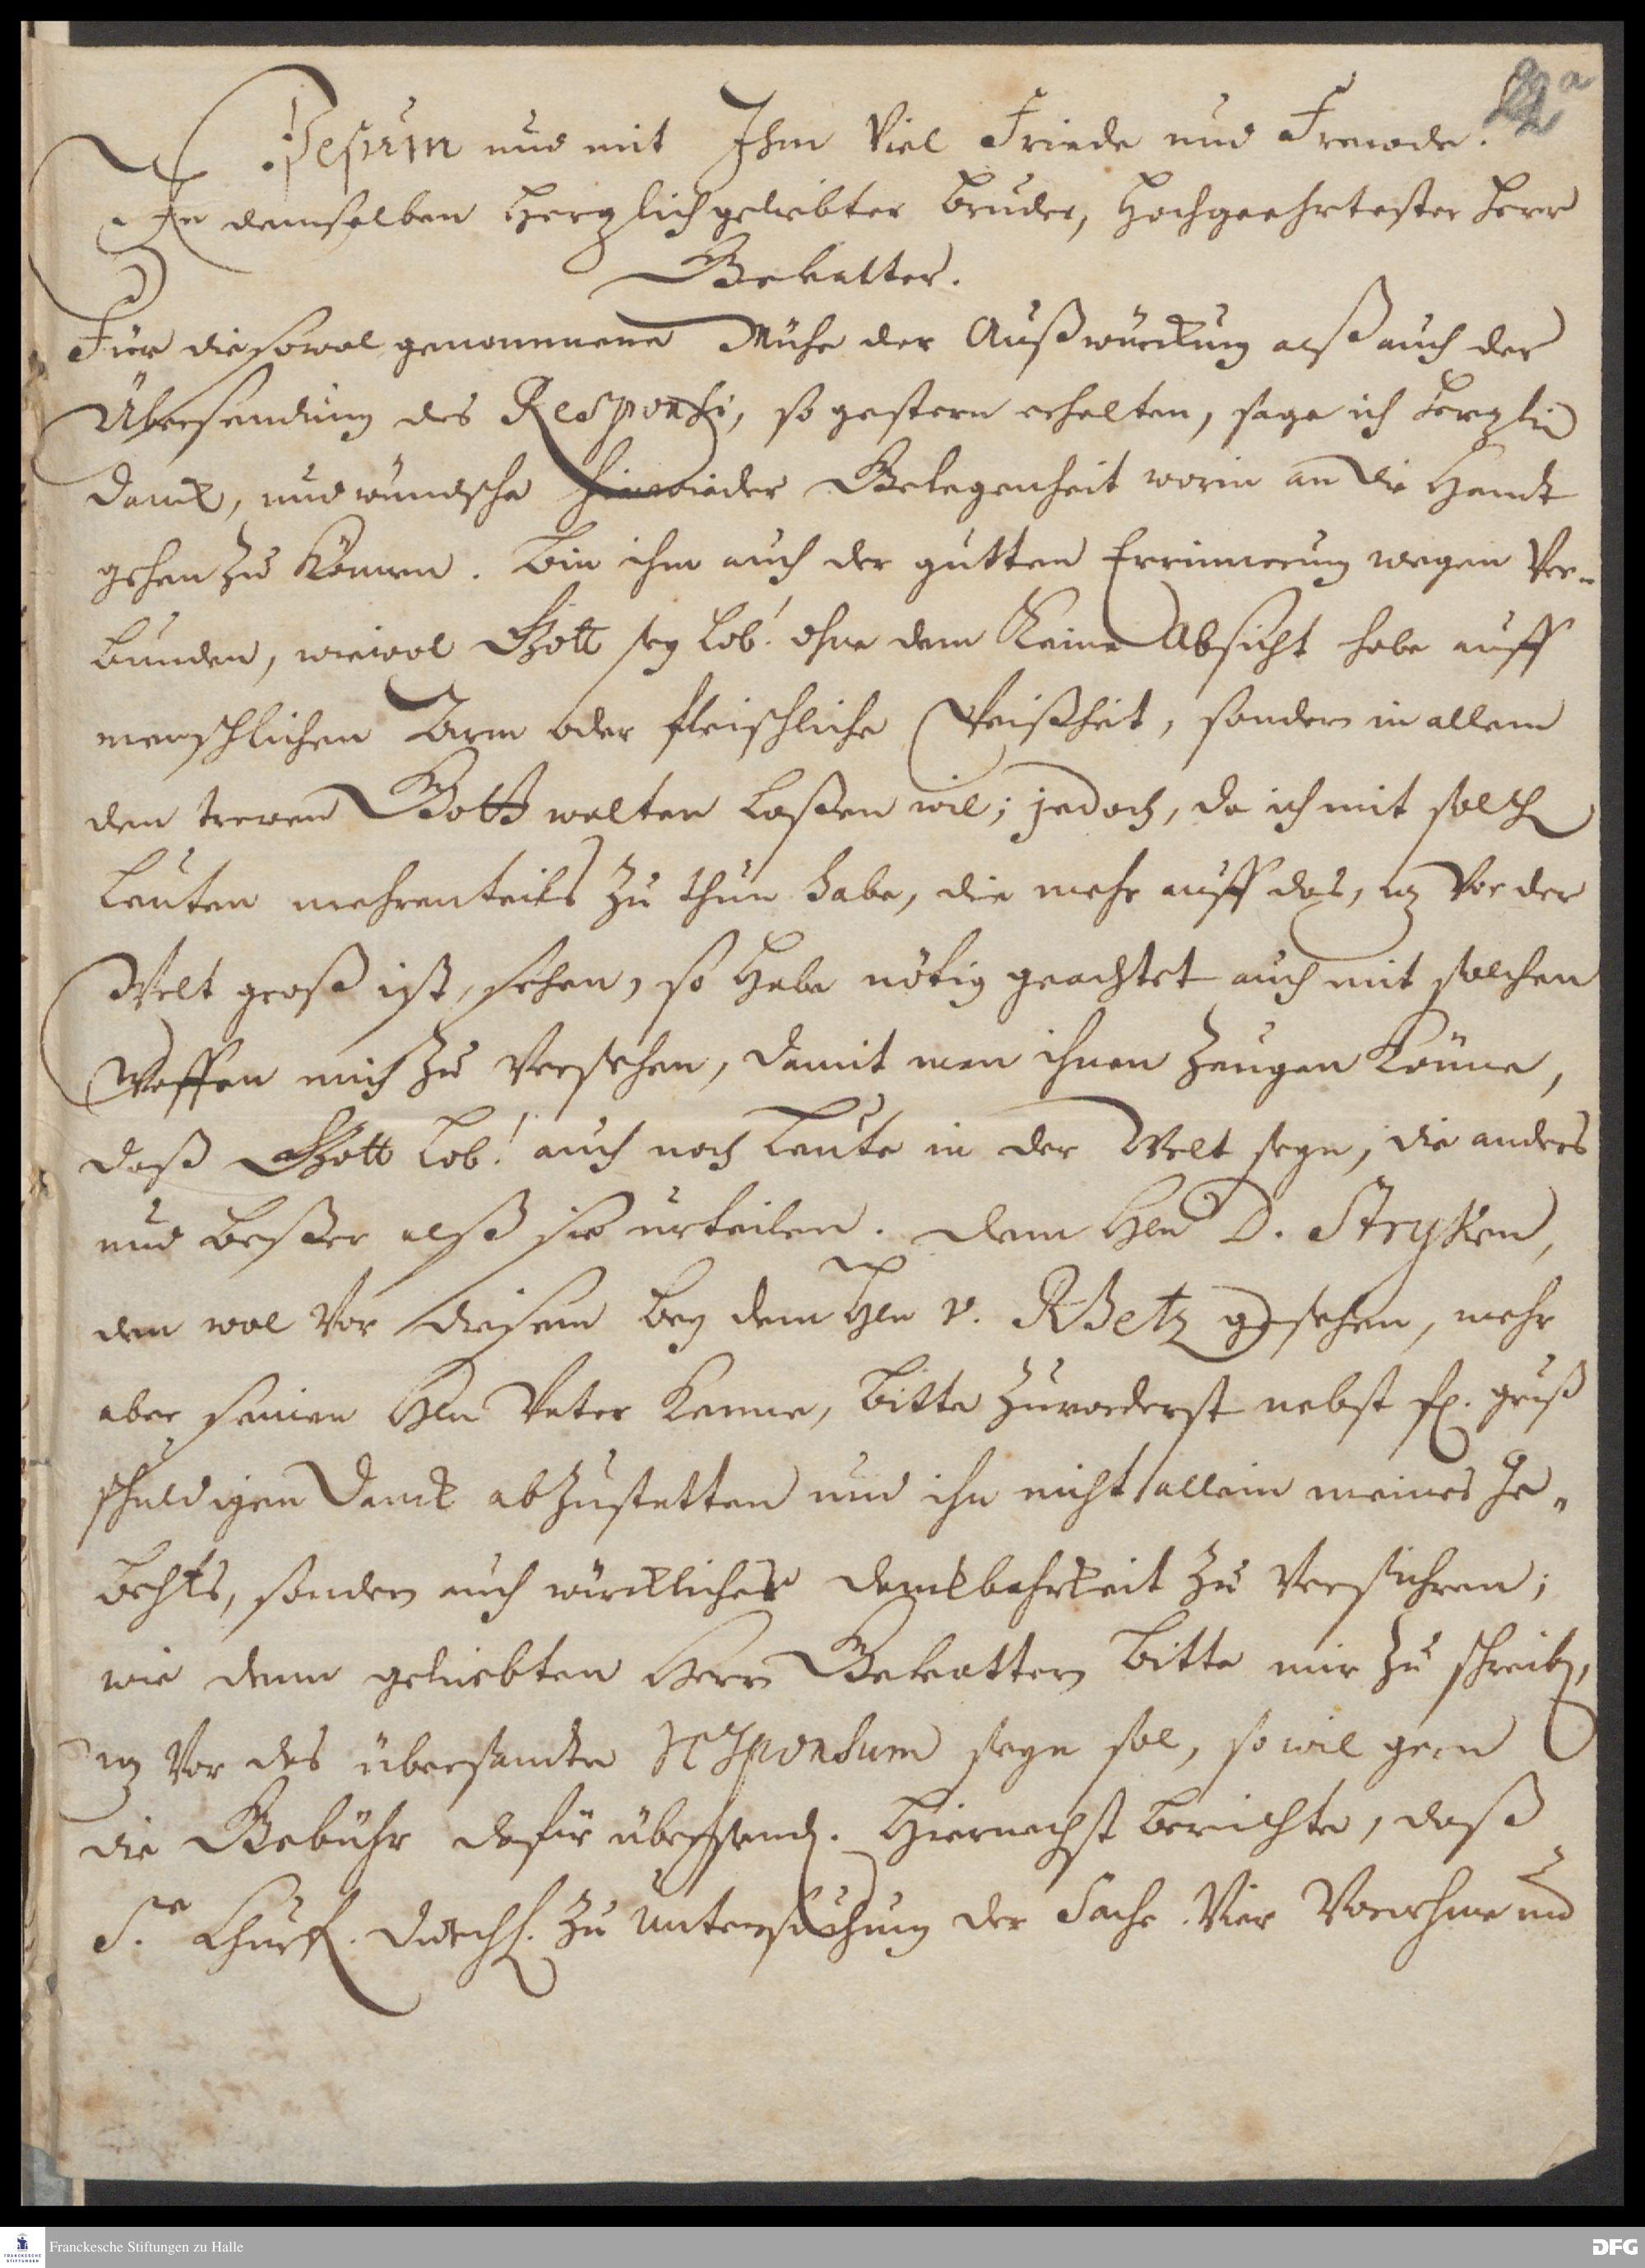 22a
Jesum und mit Ihm Viel Friede und Freude.
In demselben Hertzlich geliebter Bruder, Hochgeehrtester Herr
Gevatter.
Für die sowol genommene Mühe der Außwürckung alß auch der
Übersendung des Responsi, so gestern erhalten, sage ich hertzlich
danck, und wündsche hinwieder Gelegenheit worin an die Handt
gehen zu Können. Bin ihm auch der gutten Errinnerung wegen Ver-
bunden, wiewol Gott sey Lob! ohne dem Keine Absicht habe auff
menschlichen Arm oder fleischliche Weißheit, sondern in allem
den trewen Gott walten laßen wil; jedoch, da ich mit solch
Leuten mehrenteils zu thun habe, die mehr auff das, wz Vor der
Welt groß ist, sehen, so Habe nötig geachtet auch mit solchen
Waffen mich zu Versehen, damit man ihnen zeugen Könne,
daß Gott Lob! auch noch Leute in der Welt seyn, die anders
und beßer alß sie urteilen. dem Hln D. Stryken,
den wol Vor diesem bey dem Hln v. RBetz gesehen, mehr
aber seinen Hln Vater Kenne, bitte zuvorderst nebst fr. gruß
schuldigen Danck abzustatten und ihn nicht allein meines Ge-
behts, sondern auch würcklicher danckbahrkeit zu Versichren;
wie denn geliebten Herrn Gevattern bitte mir zu schreib,
wz Vor das übersandte Responsum seyn sol, so wil gern
die Gebühr dafür übersend. Hiernechst berichte, daß
Sr. Churf. Durchl. zu Untersuchung der Sache Vier Vornehme und
Franckesche Stiftungen zu Halle
DFG